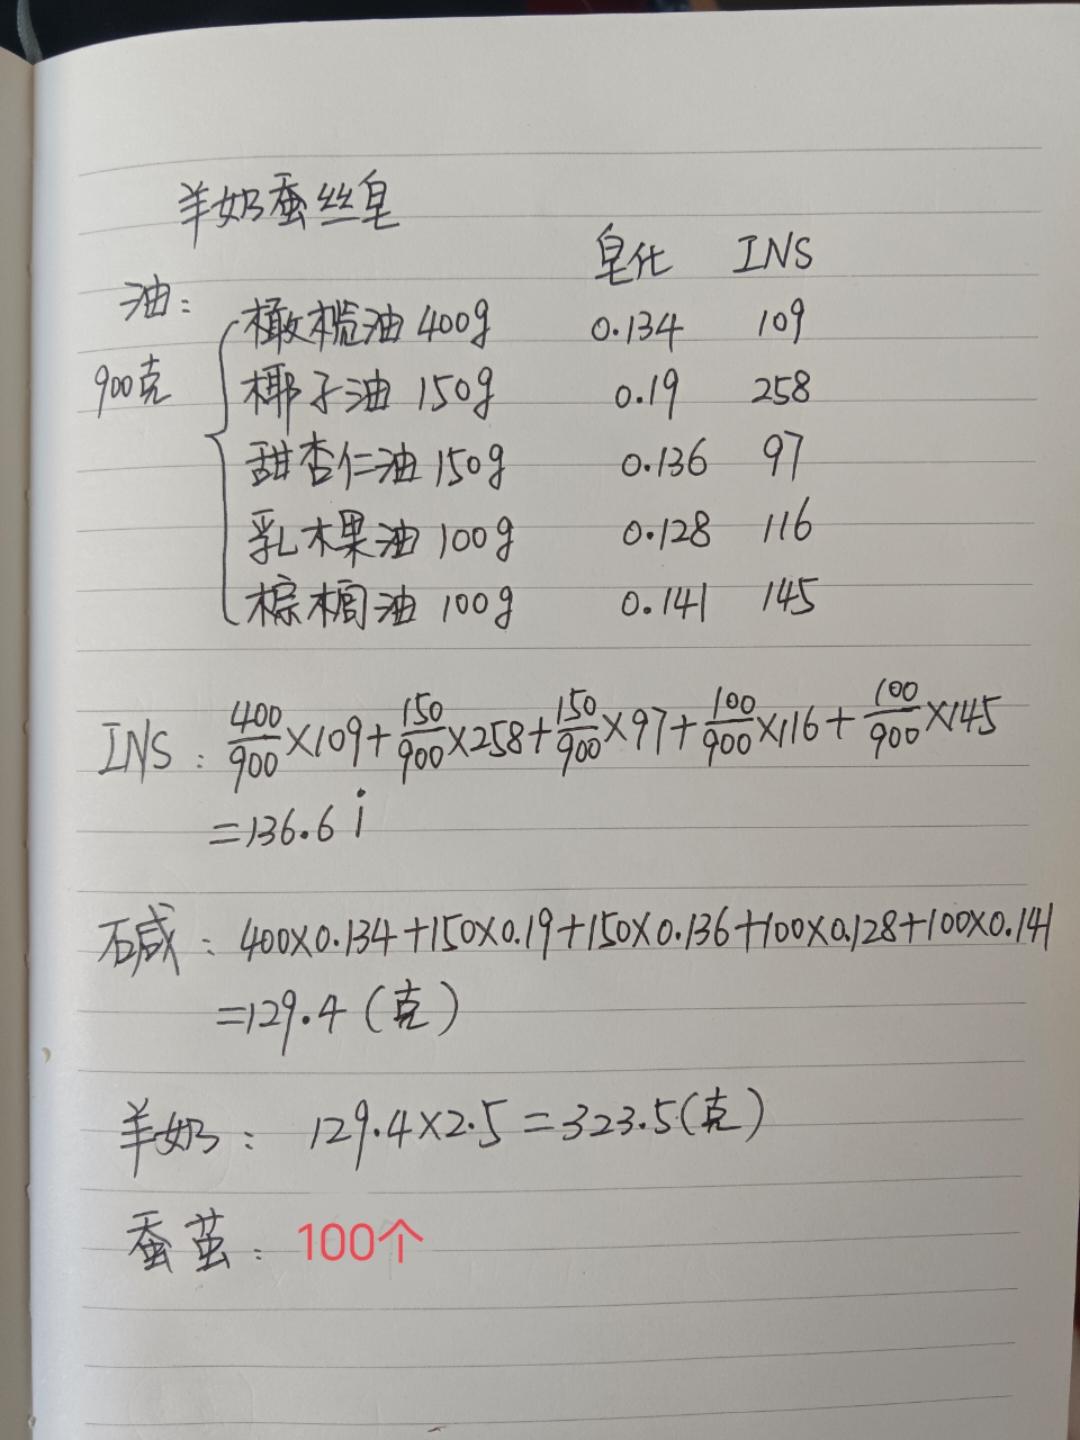 羊奶蚕丝皂
皂化 INS
油:
900克
橄榄油 400g 0.134 109
椰子油 150g 0.19 258
甜杏仁油 150g 0.136 97
乳木果油 100g 0.128 116
棕榈油 100g 0.141 145
INS: 400/900×109+150/900×258+150/900×97+100/900×116+100/900×145
=136.6
石碱: 400×0.134+150×0.19+150×0.136+100×0.128+100×0.141
=129.4(克)
羊奶: 129.4×2.5=323.5(克)
蚕茧: 100个